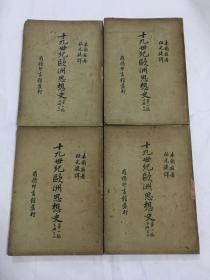 木爾茲著
伍光建譯
十九世紀歐洲思想史 第一編
商務印書館發行
木爾茲著
伍光建譯
十九世紀歐洲思想史 第一編
商務印書館發行
木爾茲著
伍光建譯
十九世紀歐洲思想史 第一編
商務印書館發行
木爾茲著
伍光建譯
十九世紀歐洲思想史 第一編
商務印書館發行